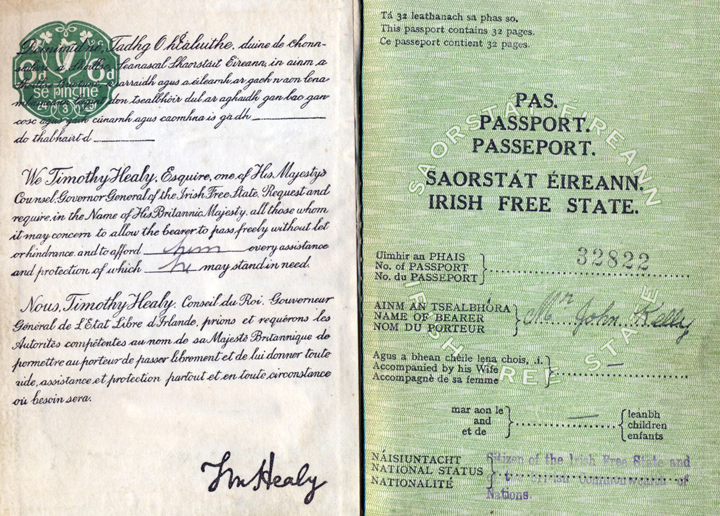 6d 6d
sé pingine
Tadhg O hEaluithe, duine de Chonn-
Seanascal Shaorstáit Éireann, in ainm a
arraidh agus a éileamh ar gach n'aon lena
don tsealbhóir dul ar aghaidh gan bac gan
cosc agus gach cúnamh agus caomhna is gá dh
do thabhairt d
We Timothy Healy, Esquire, one of His Majesty's
Counsel, Governor General of the Irish Free State, Request and
require, in the Name of His Britannic Majesty, all those whom
it may concern to allow the bearer to pass freely without let
or hindrance and to afford him every assistance
and protection of which he may stand in need.
Nous, Timothy Healy, Conseil du Roi, Gouverneur
Général de L'Etat Libre d'Irlande, prions et requérons les
Autorités compétentes au nom de sa Majesté Britannique de
permettre au porteur de passer librement et de lui donner toute
aide, assistance et protection partout et en toute circonstance
où besoin sera.
Tm Healy
Tá 32 leathanach sa phas so.
This passport contains 32 pages.
Ce passeport contient 32 pages.
PAS.
PASSPORT.
PASSEPORT.
SAORSTÁT ÉIREANN.
IRISH FREE STATE.
SAORSTÁT ÉIREANN
IRISH FREE STATE
Uimhir an PHAIS
No. of PASSPORT 32822
No. du PASSEPORT
AINM AN TSEALBHÓRA
NAME OF BEARER Mr John Kelly
NOM DU PORTEUR
Agus a bhean chéile lena chois, .i.
Accompanied by his Wife —
Accompagné de sa femme
mar aon le leanbh
and — children
et de enfants
NÁISIUNTACHT Citizen of the Irish Free State and
NATIONAL STATUS of the British Commonwealth of
NATIONALITÉ Nations.